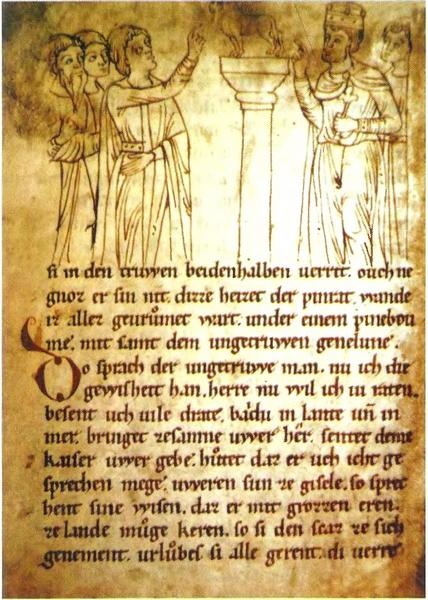 si in den truwen beidenhalben uerrit. ouch ne
gnoz er sin nit. dirre heizet der pinrat. wande
iz allez geurůmet wart. under einem pinebou
me. mit samt dem ungetruwen genelune.
So sprach der ungetruwe man. nu ich die
gewisheit han. herre nu wil ich iu raten.
besent uch uile drate. båidu in lante uñ in
mer. bringet zesamne uwer her. sentet deme
kaiser uwer gebe. hůtet daz er uch icht ge
sprechen mege. uweren sun ze gisele. so sprec
hent sine wisen. daz er mit grozzen eren.
ze lande můge keren. so si den scaz ze sich
genement. urlůbes si alle gerent. di uerre